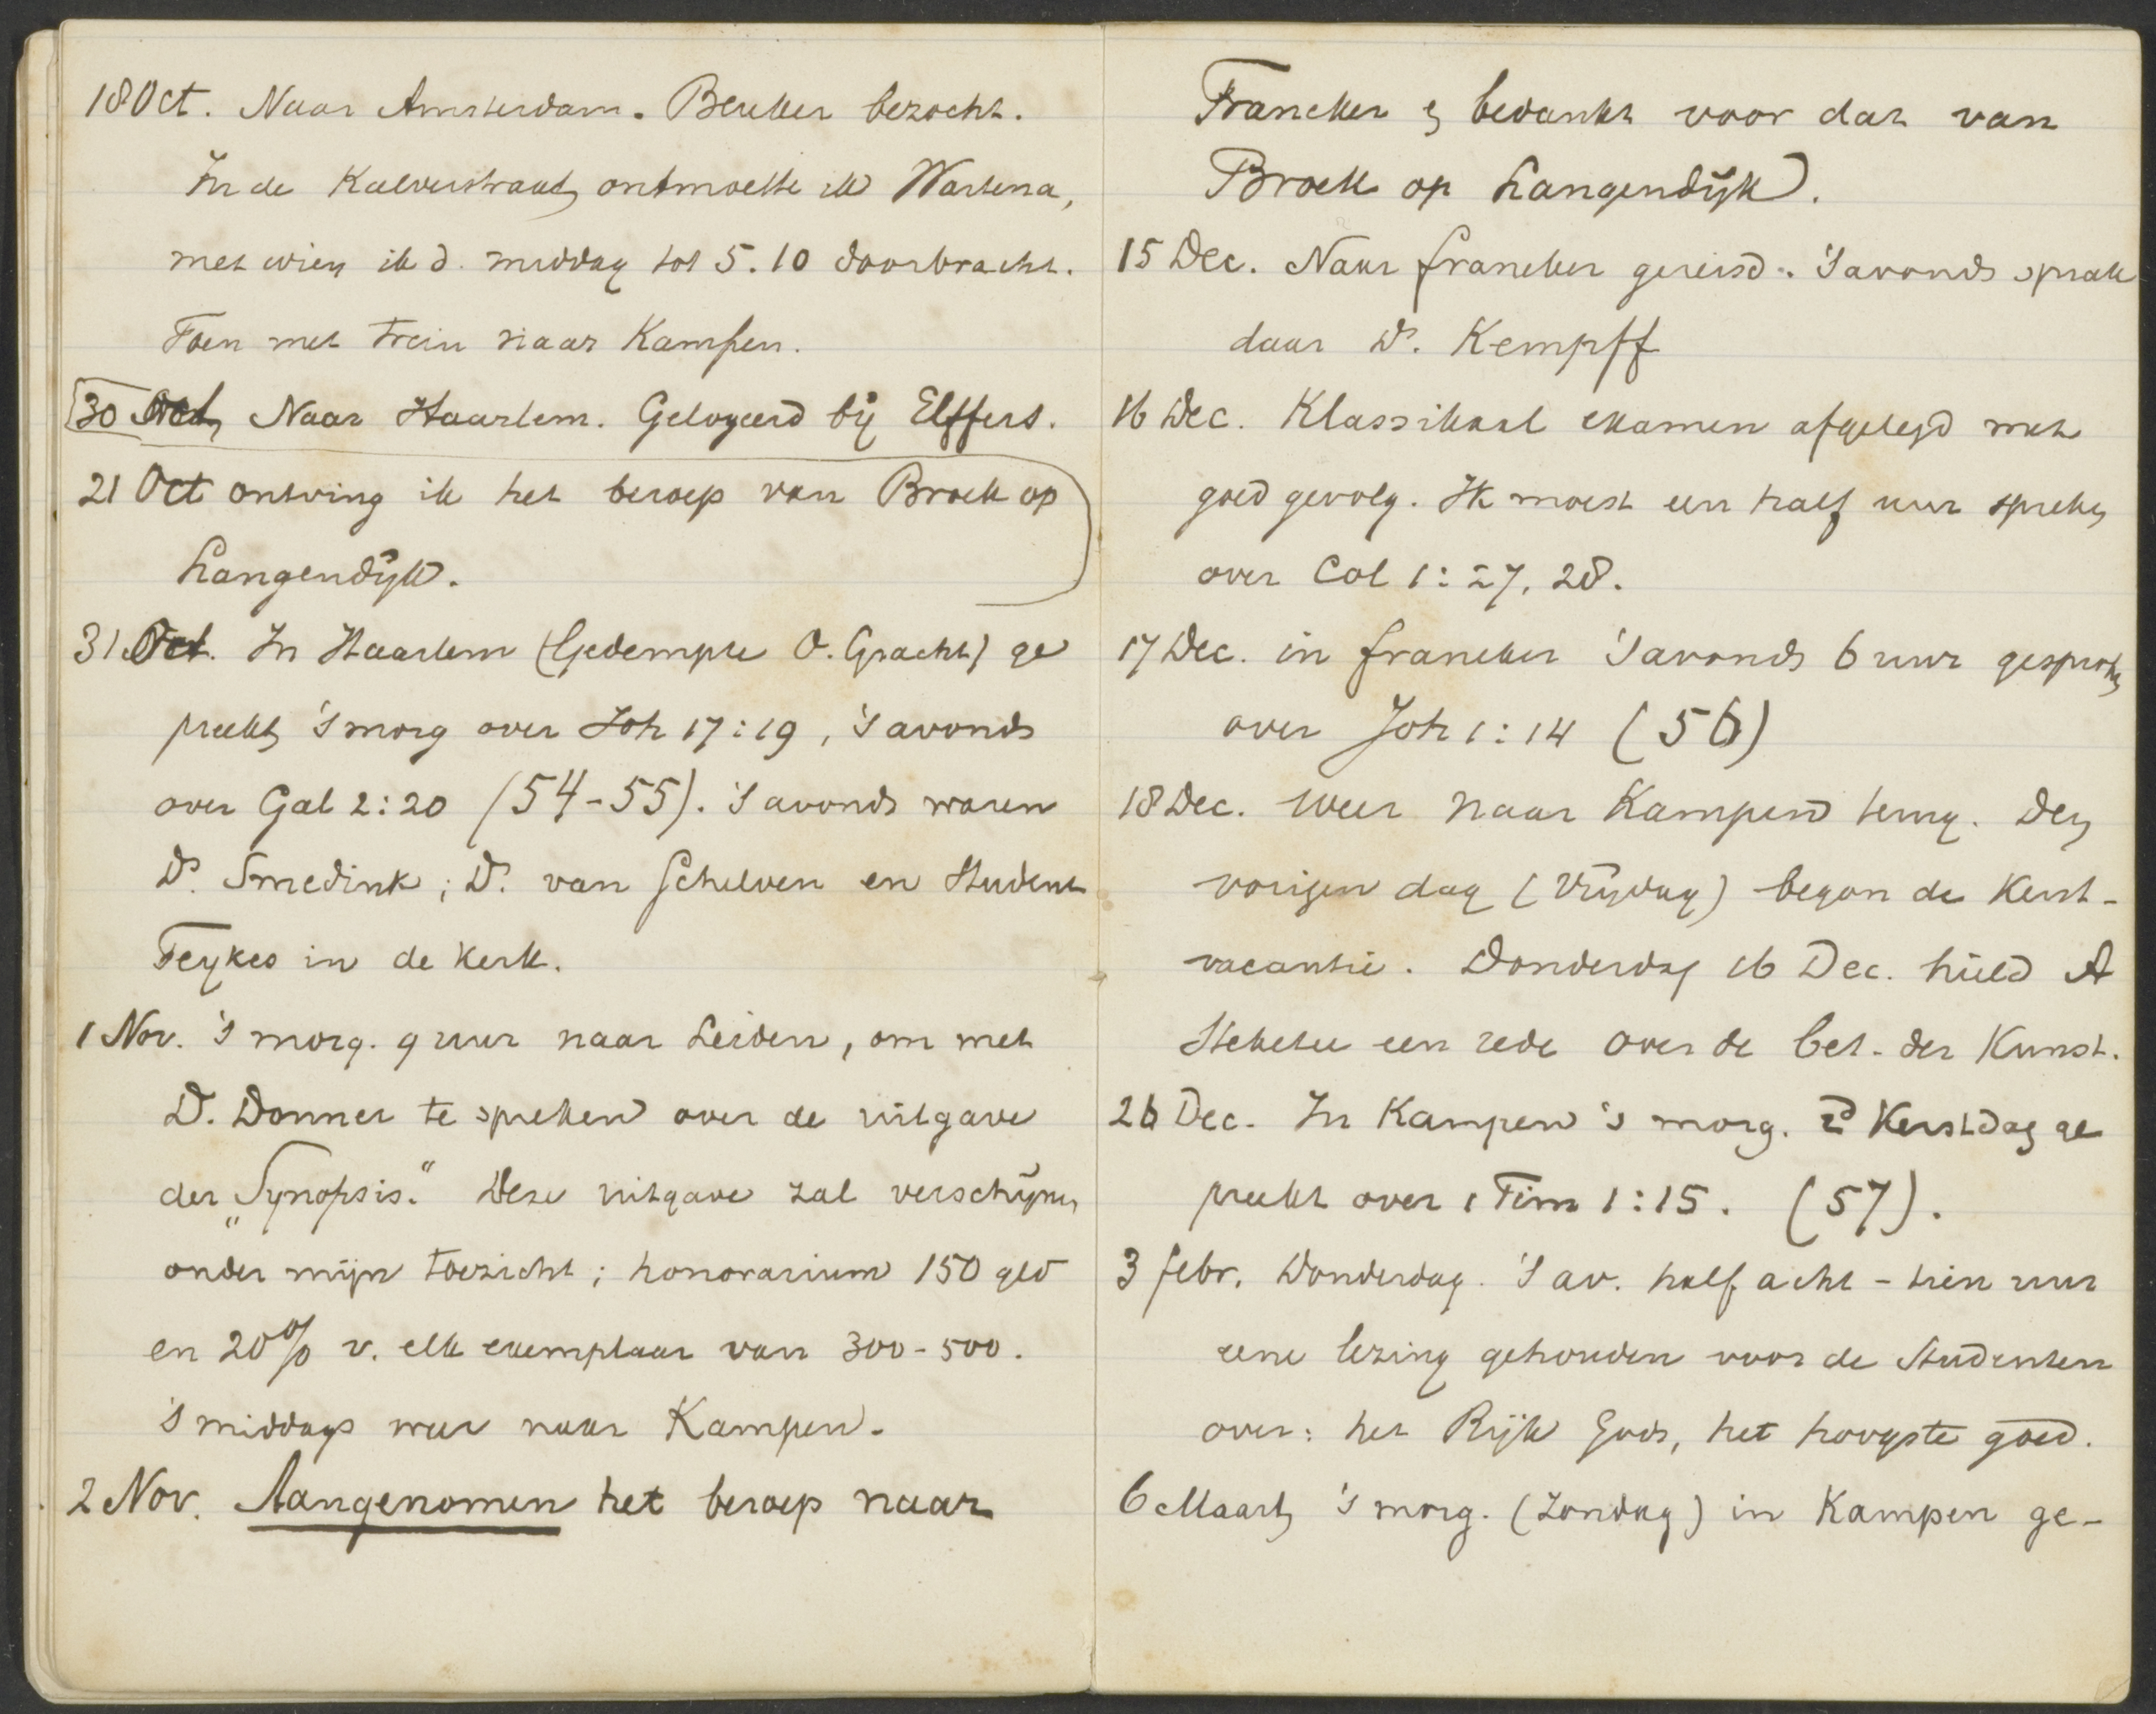 18 Oct. Naar Amsterdam. Beuker bezocht.
In de Kalverstraat ontmoette ik Wartena,
met wien ik d. middag tot 5.10 doorbracht.
Toen met trein naar Kampen.
30 Oct Naar Haarlem. Gelogeerd bij Elffers.
21 Oct ontving ik het beroep van Broek op
Langendijk.
31 Oct. In Haarlem (Gedempte O. Gracht) ge
preekt 's morg over Joh 17:19, 's avonds
over Gal 2:20 (54-55). 's avonds waren
Ds. Smedink; Ds. van Schelven en Student
Feykes in de kerk.
1 Nov. 's morg. 9 uur naar Leiden, om met
D. Donner te spreken over de uitgave
der „Synopsis." Deze uitgave zal verschijnen
onder mijn toezicht; honorarium 150 gld
en 20% v. elk exemplaar van 300-500.
's middags weer naar Kampen.
2 Nov. Aangenomen het beroep naar
Franeker en bedankt voor dat van
Broek op Langendijk).
15 Dec. Naar Franeker gereisd. 's avonds sprak
daar Ds. Kempff
16 Dec. Klassikaal examen afgelegd met
goed gevolg. Ik moest een half uur spreken
over Col 1:27, 28.
17 Dec. in Franeker 's avonds 6 uur gesproken
over Joh 1:14 (56)
18 Dec. weer naar Kampen terug. Den
vorigen dag (Vrijdag) begon de Kerst-
vacantie. Donderdag 16 Dec. hield A
Steketee een rede over de bet. der Kunst.
26 Dec. In Kampen 's morg. 2d Kerstdag ge
preekt over 1 Tim 1:15. (57).
3 Febr. Donderdag. 's av. half acht - tien uur
eene lezing gehouden voor de Studenten
over: het Rijk Gods, het hoogste goed.
6 Maart 's morg. (Zondag) in Kampen ge-